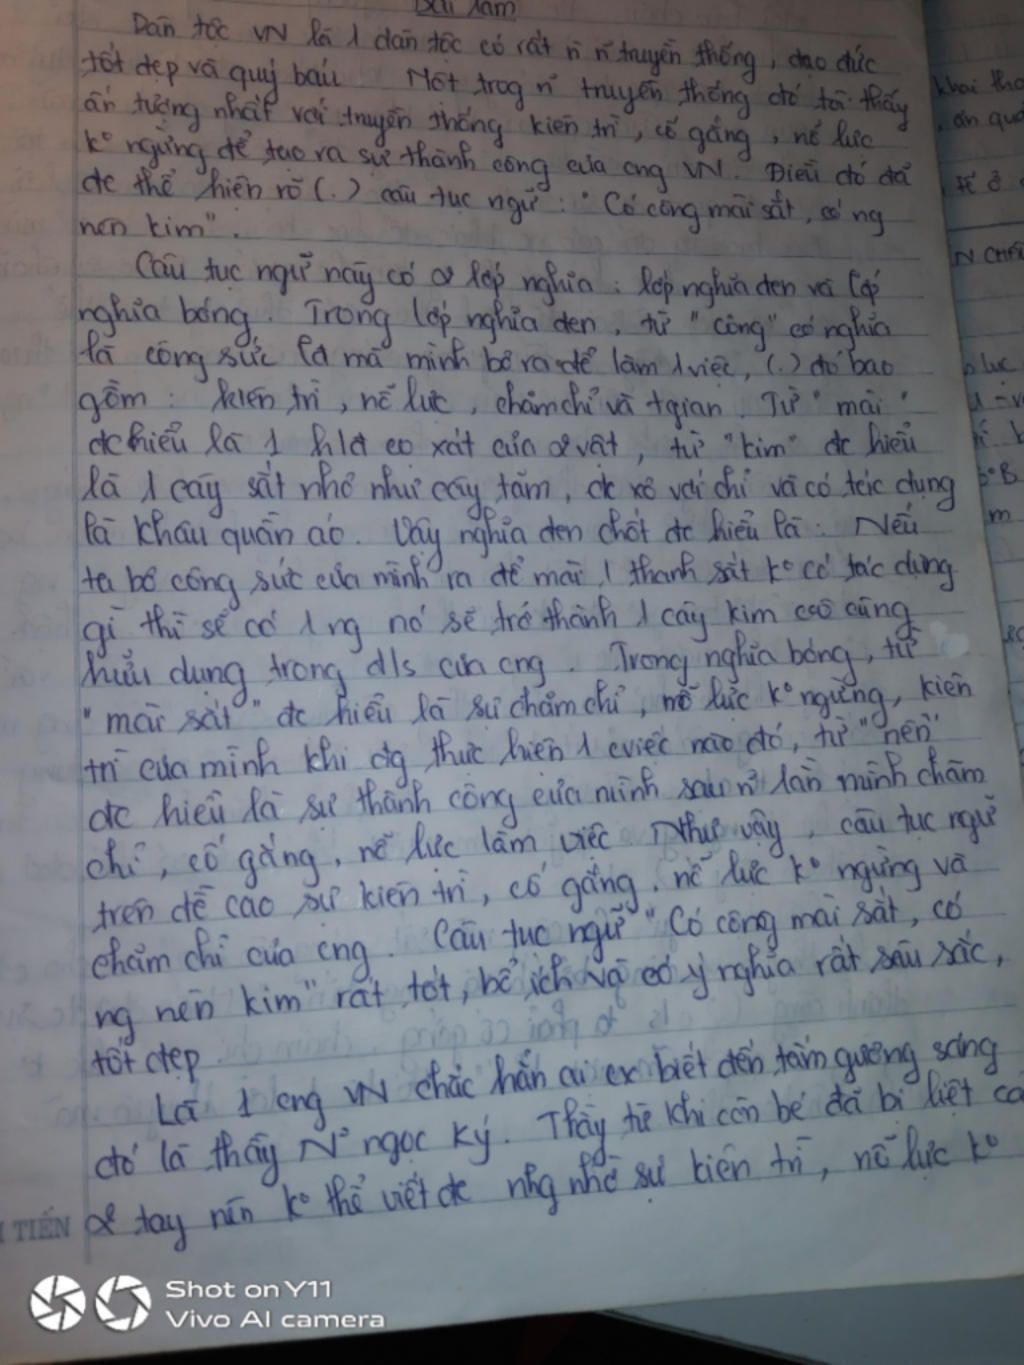 Bài làm
Dân tộc VN là 1 dân tộc có rất n n truyền thống, đạo đức
tốt đẹp và quý báu Một trog n~ truyền thống đó tôi thấy
ấn tượng nhất với truyền thống kiên trì, cố gắng, nỗ lực
k° ngừng để tạo ra sự thành công của cng VN. Điều đó đã
đc thể hiện rõ (.) câu tục ngữ : "Có công mài sắt, có ng
nên kim".
Câu tục ngữ này có 2 lớp nghĩa : lớp nghĩa đen và lớp
nghĩa bóng. Trong lớp nghĩa đen, từ "công" có nghĩa
là công sức mà mình bỏ ra để làm 1 việc, (.) đó bao
gồm : kiên trì, nỗ lực, chăm chỉ và tgian. Từ "mài"
đc hiểu là 1 cọ xát của 2 vật, từ "kim" đc hiểu
là 1 cây sắt nhỏ như cây tăm, đc xỏ với chỉ và có tác dụng
là khâu quần áo. Vậy nghĩa đen chốt đc hiểu là : Nếu
ta bỏ công sức của mình ra để mài 1 thanh sắt k° có tác dụng
gì thì sẽ có 1 ng nó sẽ trở thành 1 cây kim vô cùng
hữu dụng trong đ/s của cng. Trong nghĩa bóng, từ
"mài sắt" đc hiểu là sự chăm chỉ, nỗ lực k° ngừng, kiên
trì của mình khi đg thực hiện 1 cviệc nào đó, từ "nên"
đc hiểu là sự thành công của mình sau n~ lần mình chăm
chỉ, cố gắng, nỗ lực làm việc Như vậy, câu tục ngữ
trên đề cao sự kiên trì, cố gắng, nỗ lực k° ngừng và
chăm chỉ của cng. Câu tục ngữ "Có công mài sắt, có
ng nên kim" rất tốt, bổ ích và có ý nghĩa rất sâu sắc,
tốt đẹp
Là 1 cng VN chắc hẳn ai biết đến tấm gương sáng
đó là thầy N° ngọc Ký. Thầy từ khi còn bé đã bị liệt cả
2 tay nên k° thể viết đc nhg nhờ sự kiên trì, nỗ lực k°
TIẾN
Shot on Y11
Vivo AI camera